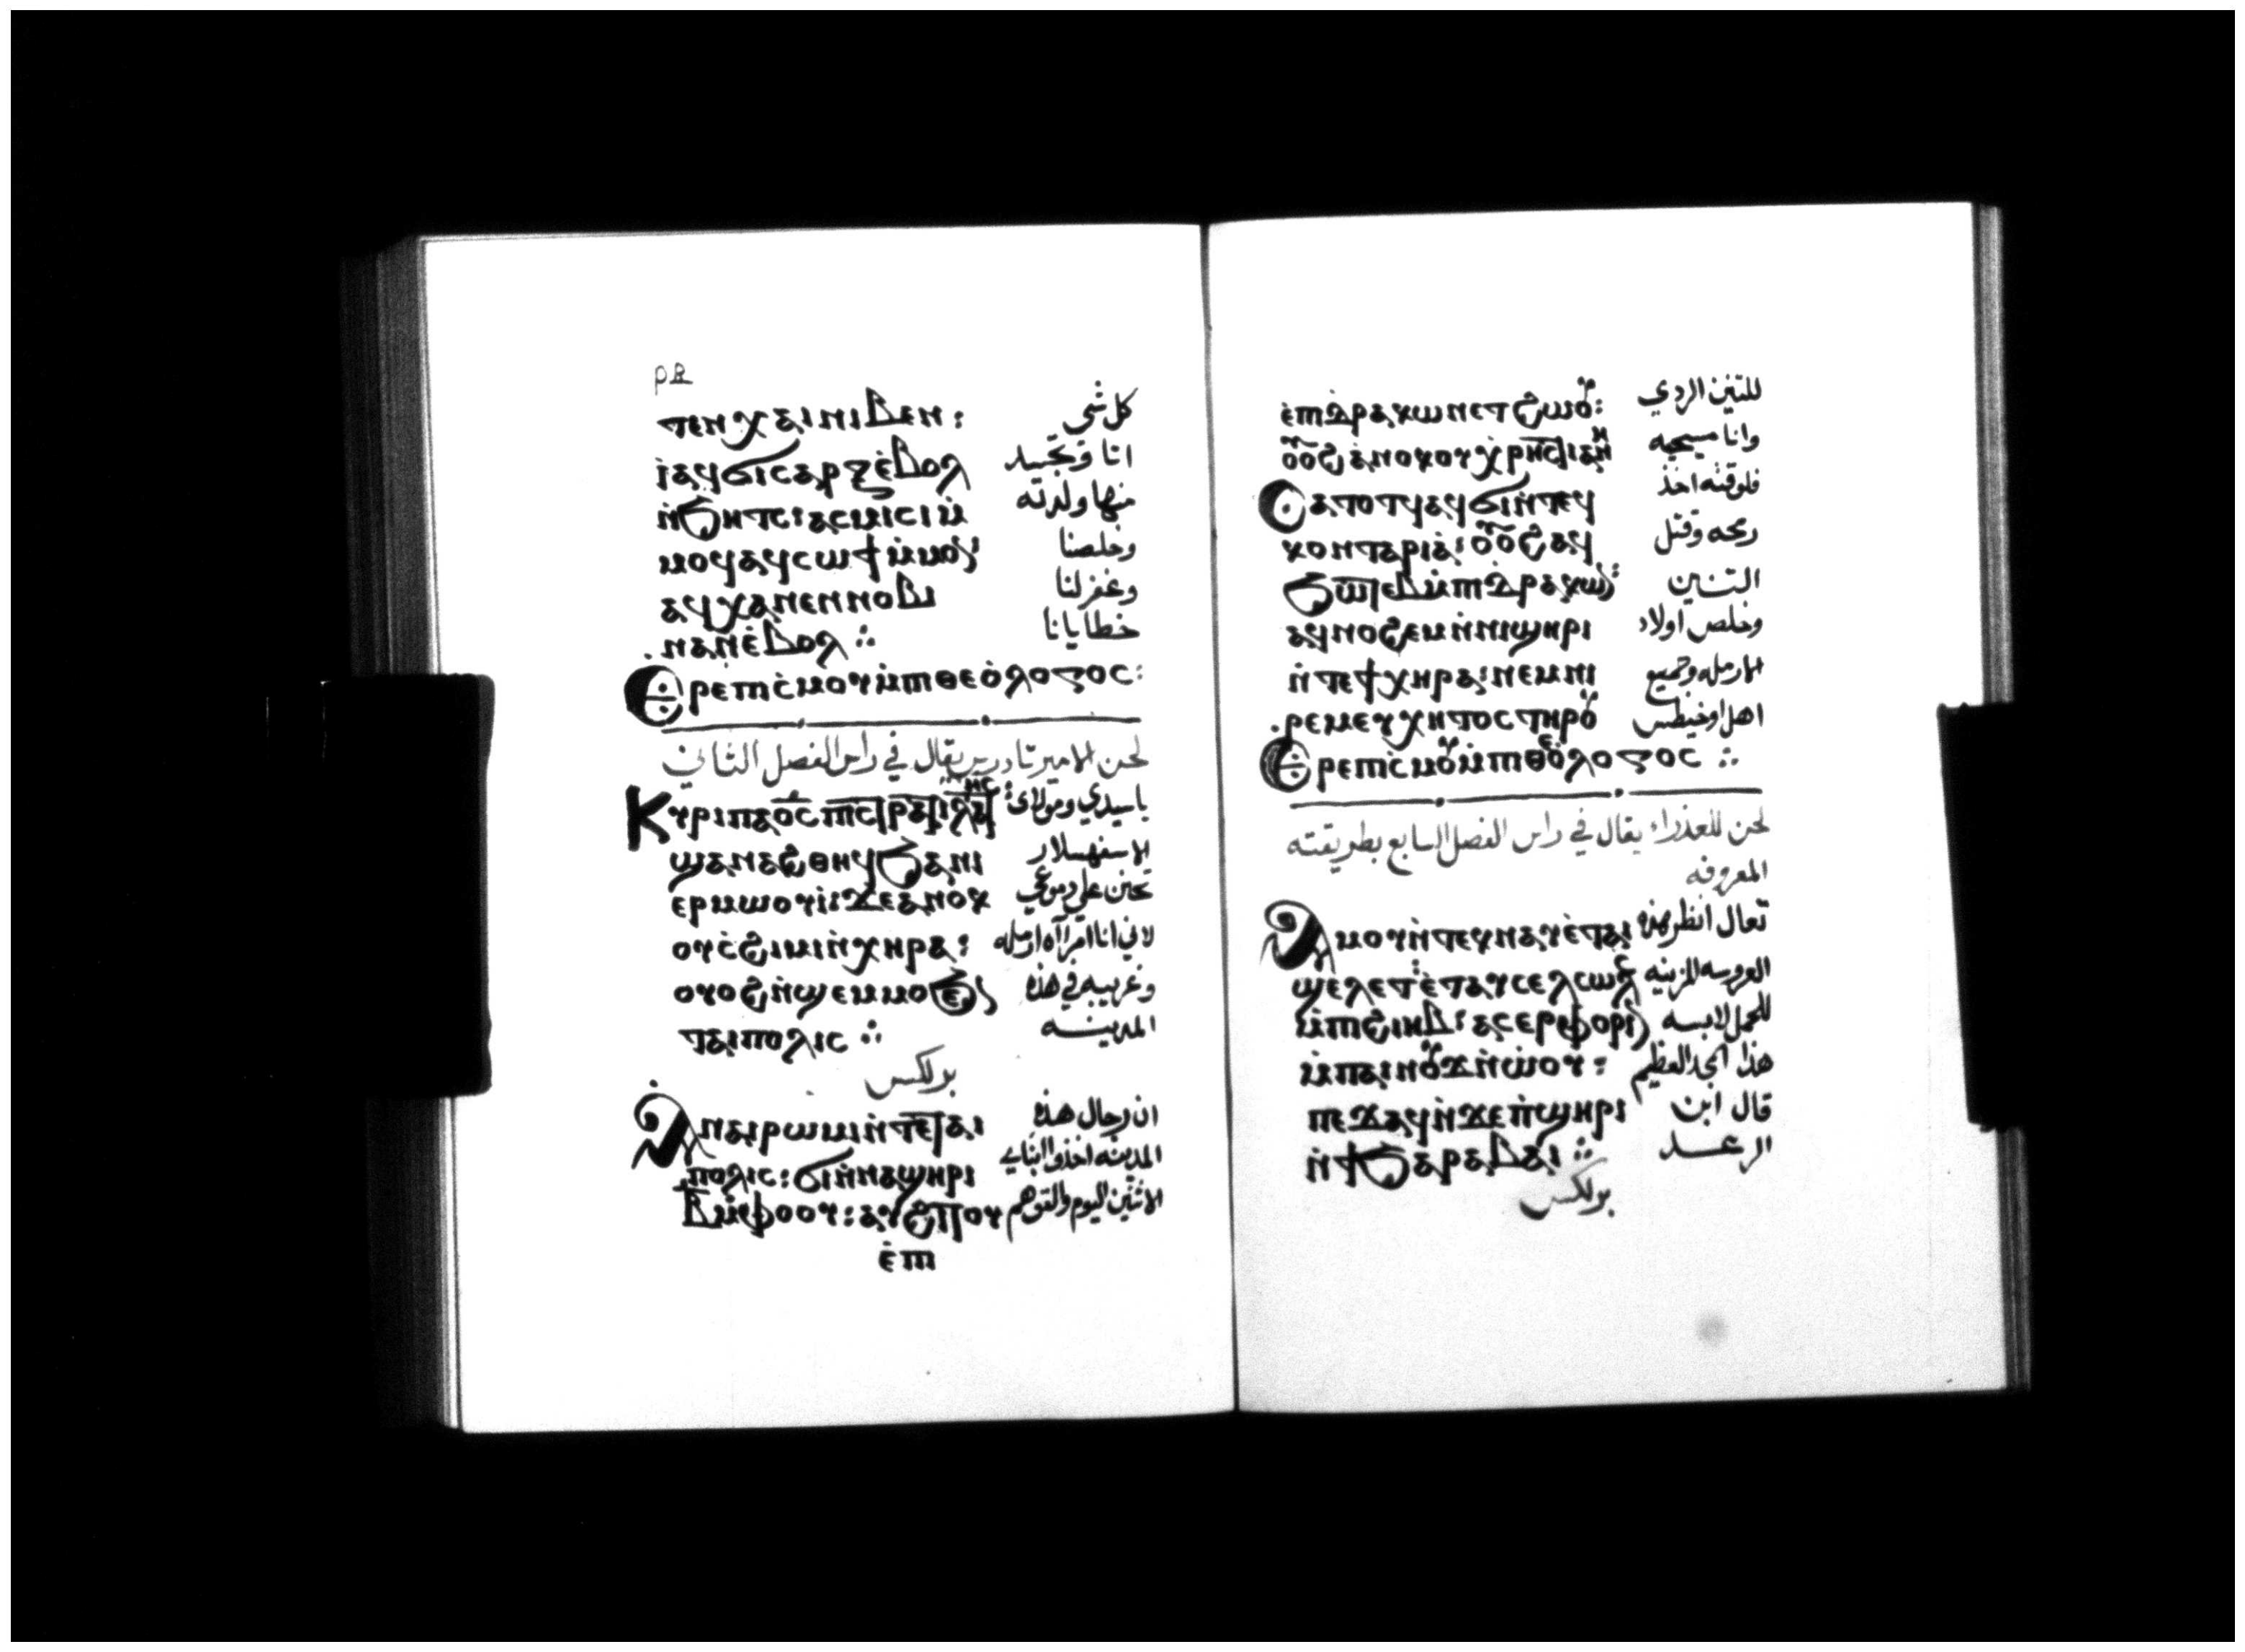 ⲣⲃ
ⲧⲉⲛⲭⲁⲓⲛⲓⲃⲉⲛ: كل شى
ⲓ̀ⲁϥϭⲓⲥⲁⲣⲝⲉ̀ⲃⲟⲗ اتا وتجسد
ⲛ̀ϧⲏⲧⲥ:ⲁⲥⲙⲓⲥⲓⲙ̀ منها ولدته
ⲙⲟϥⲁϥⲥⲱϯⲙ̀ⲙⲟⲛ وخلصنا
ⲁϥⲭⲁⲛⲉⲛⲛⲟⲃⲓ وغفر لنا
ⲛⲁⲛⲉ̀ⲃⲟⲗ خطايانا
Ⲉⲣⲉⲡⲥ̀ⲙⲟⲩⲙ̀ⲡⲑⲉⲟ̀ⲗⲟⲅⲟⲥ:
لحن الامير تادرس يقال في راس الفصل الثاني
Ⲕⲩⲣⲓⲡⲁⲟ̅ⲥ̅ⲡⲥⲧⲣⲁⲧⲓⲗⲁⲧⲏⲥ: ياسيدي ومولاى
ϣⲉⲛⲁϩⲑⲏϥϧⲁⲛⲓ الاسفهسلار
ⲉⲣⲙⲱⲟⲩⲓ̀:ϫⲉⲁⲛⲟⲕ تحنن علي دموعي
ⲟⲩⲥ̀ϩⲓⲙⲓⲛ̀ⲭⲏⲣⲁ: لاني انا امراه ارمله
ⲟⲩⲟϩⲛ̀ϣⲉⲙⲙⲟϧⲉⲛ وغريبه في هذه
ⲧⲁⲓⲡⲟⲗⲓⲥ المدينه
بولكس
Ⲁⲛⲁⲓⲣⲱⲙⲓⲛ̀ⲧⲉⲧⲁⲓ ان رجال هذه
ⲡⲟⲗⲓⲥ:ϭⲓⲛ̀ⲛⲁϣⲏⲣⲓ المدينه اخذوا ابناي
ⲃ̅ⲙ̀ⲫⲟⲟⲩ:ⲁⲩϩⲓⲧⲟⲩ الاثنين اليوم والقوهم
ⲉ̀ⲡ
ⲉ̀ⲡⲇ̀ⲣⲁⲕⲱⲛⲉⲧϩⲱⲟⲩ: للتنين الردي
ⲟⲩⲟϩⲁⲛⲟⲕⲟⲩⲭ̀ⲣⲏⲥⲧⲓⲁⲛⲏ وانا مسيحيه
Ⲥⲁⲧⲟⲧϥⲁϥϭⲓⲛ̀ⲧⲉϥ فلوقته اخذ
ⲕⲟⲛⲧⲁⲣⲓⲁ:ⲟⲩⲟϩⲁϥ رمحه وقتل
ϧⲱⲧⲉⲃⲙ̀ⲡⲇ̀ⲣⲁⲕⲱⲛ: التنين
ⲁϥⲛⲟϩⲉⲙⲛ̀ⲛⲓϣⲏⲣⲓ وخلص اولاد
ⲛ̀ⲧⲉϯⲭⲏⲣⲁ:ⲛⲉⲙⲛⲓ الارمله وجميع
ⲣⲉⲙⲉⲩⲭⲏⲧⲟⲥⲧⲏⲣⲟⲩ اهل اوخيطس
Ⲉⲣⲉⲡⲥ̀ⲙⲟⲩⲙ̀ⲡⲑⲉⲟ̀ⲗⲟⲅⲟⲥ
لحن للعذراء يقال في راس الفصل السابع بطريقته
المعروفه
Ⲁⲙⲟⲩⲛ̀ⲧⲉⲕⲛⲁⲩⲉ̀ⲧⲁⲓ تعال انظر هذه
ϣⲉⲗⲉⲧ:ⲉ̀ⲧⲁⲩⲥⲉⲗⲥⲱⲗⲥ العروسه المزينه
ⲙ̀ⲡϩⲓⲏⲃ:ⲁⲥⲉⲣⲫⲟⲣⲓⲛ للحمل لابسه
ⲙ̀ⲡⲁⲓⲛⲟⲩϫⲛ̀ⲱ̀ⲟⲩ: هذا المجد العظيم
ⲡⲉϫⲁϥⲛ̀ϫⲉⲡ̀ϣⲏⲣⲓ قال ابن
ⲛ̀ϯϧⲁⲣⲁⲃⲁⲓ الرعد
بولكس